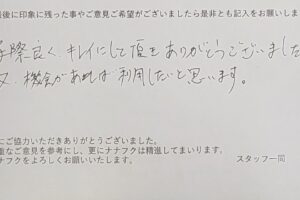 最後に印象に残った事やご意見ご希望がございましたら是非とも記入をお願いしま
際良く、キレイにして頂きありがとうございました
又、機会があれば利用したいと思います。
にご協力いただきありがとうございました。
重なご意見を参考にし、更にナナフクは精進してまいります。
ナフクをよろしくお願いいたします。
スタッフ一同